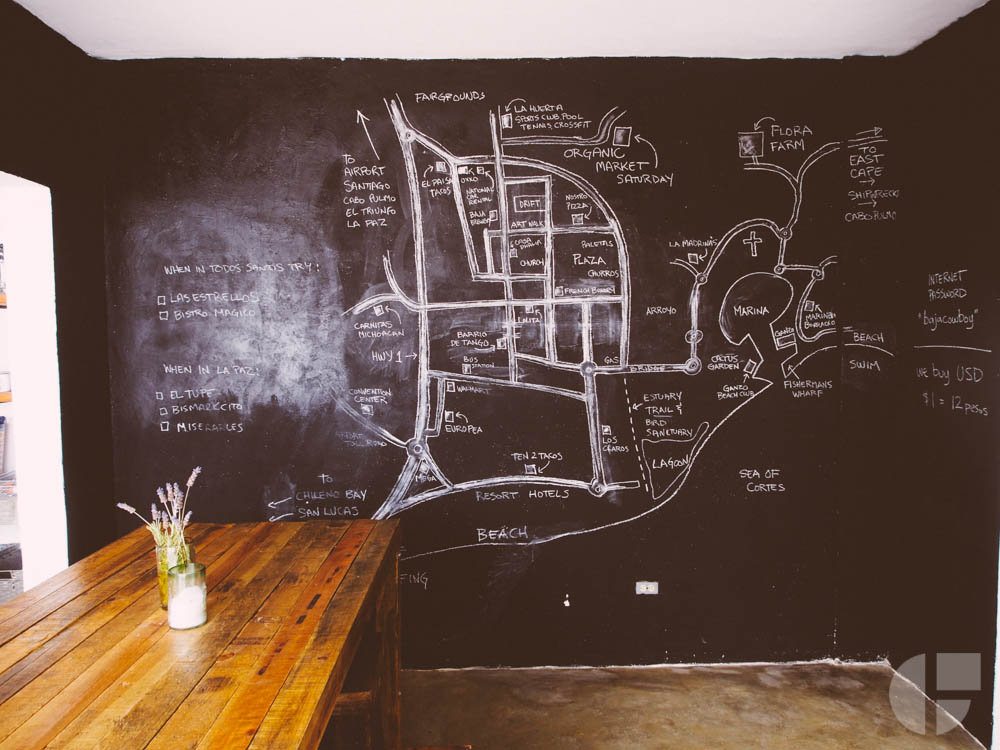 FAIRGROUNDS
LA HUERTA
SPORTS CLUB, POOL
TENNIS, CROSSFIT
ORGANIC
MARKET
SATURDAY
FLORA
FARM
TO
EAST
CAPE
SHIPWRECKS
CABO PULMO
TO
AIRPORT
SANTIAGO
CABO PULMO
EL TRIUNFO
LA PAZ
EL PAISA
TACOS
OXXO
NATIONAL
CAR
RENTAL
BAJA
DRIFT
NOSTRO
PIZZA
ART WALK
CASA
DHALIA
CHURCH
PALETAS
PLAZA
CHURROS
FRENCH BAKERY
LA MADRINAS
WHEN IN TODOS SANTOS TRY:
LAS ESTRELLOS
BISTRO MAGICO
CARNITAS
MICHOACAN
HWY 1
LOLITA
BARRIO
DE TANGO
BUS
STATION
GAS
BRIDGE
ARROYO
MARINA
GANZO
CACTUS
GARDEN
GANZO
BEACH CLUB
FISHERMANS
WHARF
BEACH
SWIM
INTERNET
PASSWORD
"bajacowboy"
WE BUY USD
$1 = 12 pesos
WHEN IN LA PAZ:
EL TUFE
BISMARKCITO
MISERABLES
CONVENTION
CENTER
TOLL ROAD
WALMART
EUROPEA
MEGA
LOS
CLAROS
ESTUARY
TRAIL &
BIRD
SANCTUARY
LAGOON
TEN 2 TACOS
RESORT HOTELS
SEA OF
CORTES
TO
CHILENO BAY
SAN LUCAS
BEACH